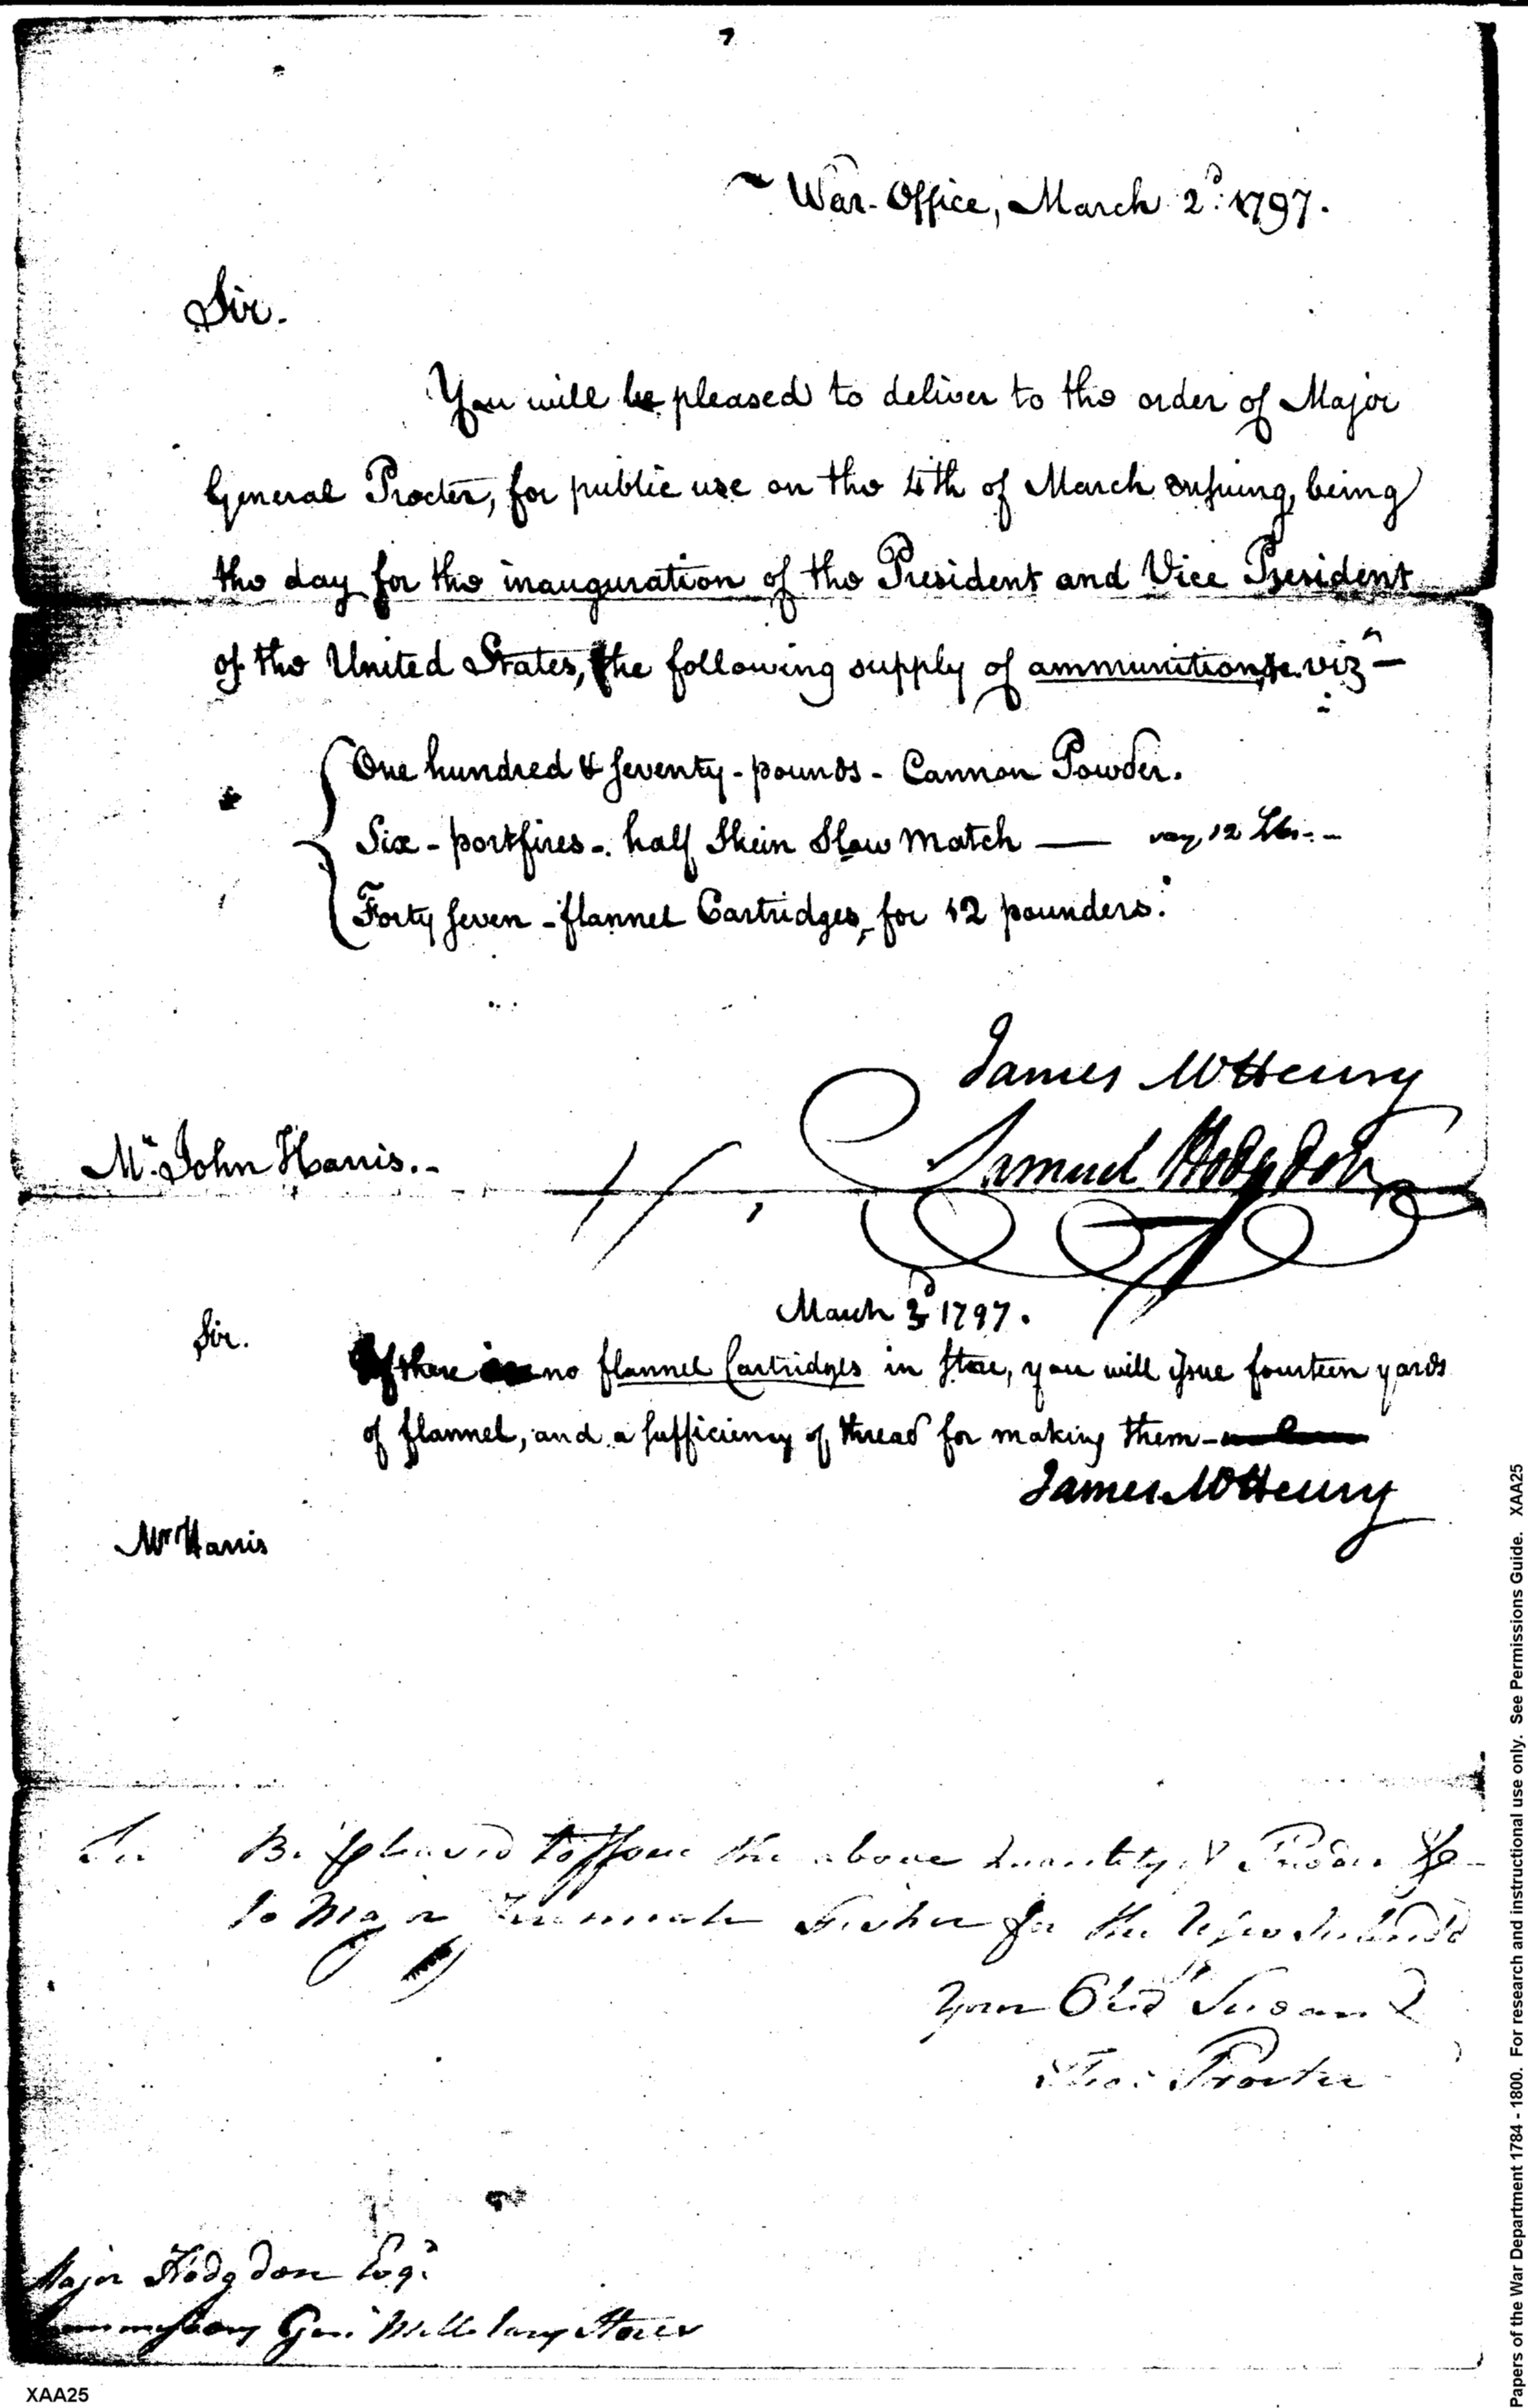 War-Office, March 2d. 1797.
Sir.
You will be pleased to deliver to the order of Major
General Procter, for public use on the 4th of March ensuing, being
the day for the inauguration of the President and Vice President
of the United States, the following supply of ammunition, &c. viz
One hundred & seventy-pounds-Cannon Powder.
Six-portfires-. half Skein Slow Match — say 12 lbs.
Forty seven-flannel Cartridges, for 12 pounders.
James McHenry
Mr. John Harris.
Samuel Hodgdon
March 3d 1797.
Sir.
If there no flannel Cartridges in Store, you will issue fourteen yards
of flannel, and a sufficiency of thread for making them-
James McHenry
Mr Harris
Sir Be pleased to Issue the above quantity of Powder &c
to Major Fisher for the Use
Your Obed Servant
Thos: Procter
Major Hodgdon Esqr
Genl Millitary Stores
XAA25
Papers of the War Department 1784 - 1800. For research and instructional use only. See Permissions Guide. XAA25